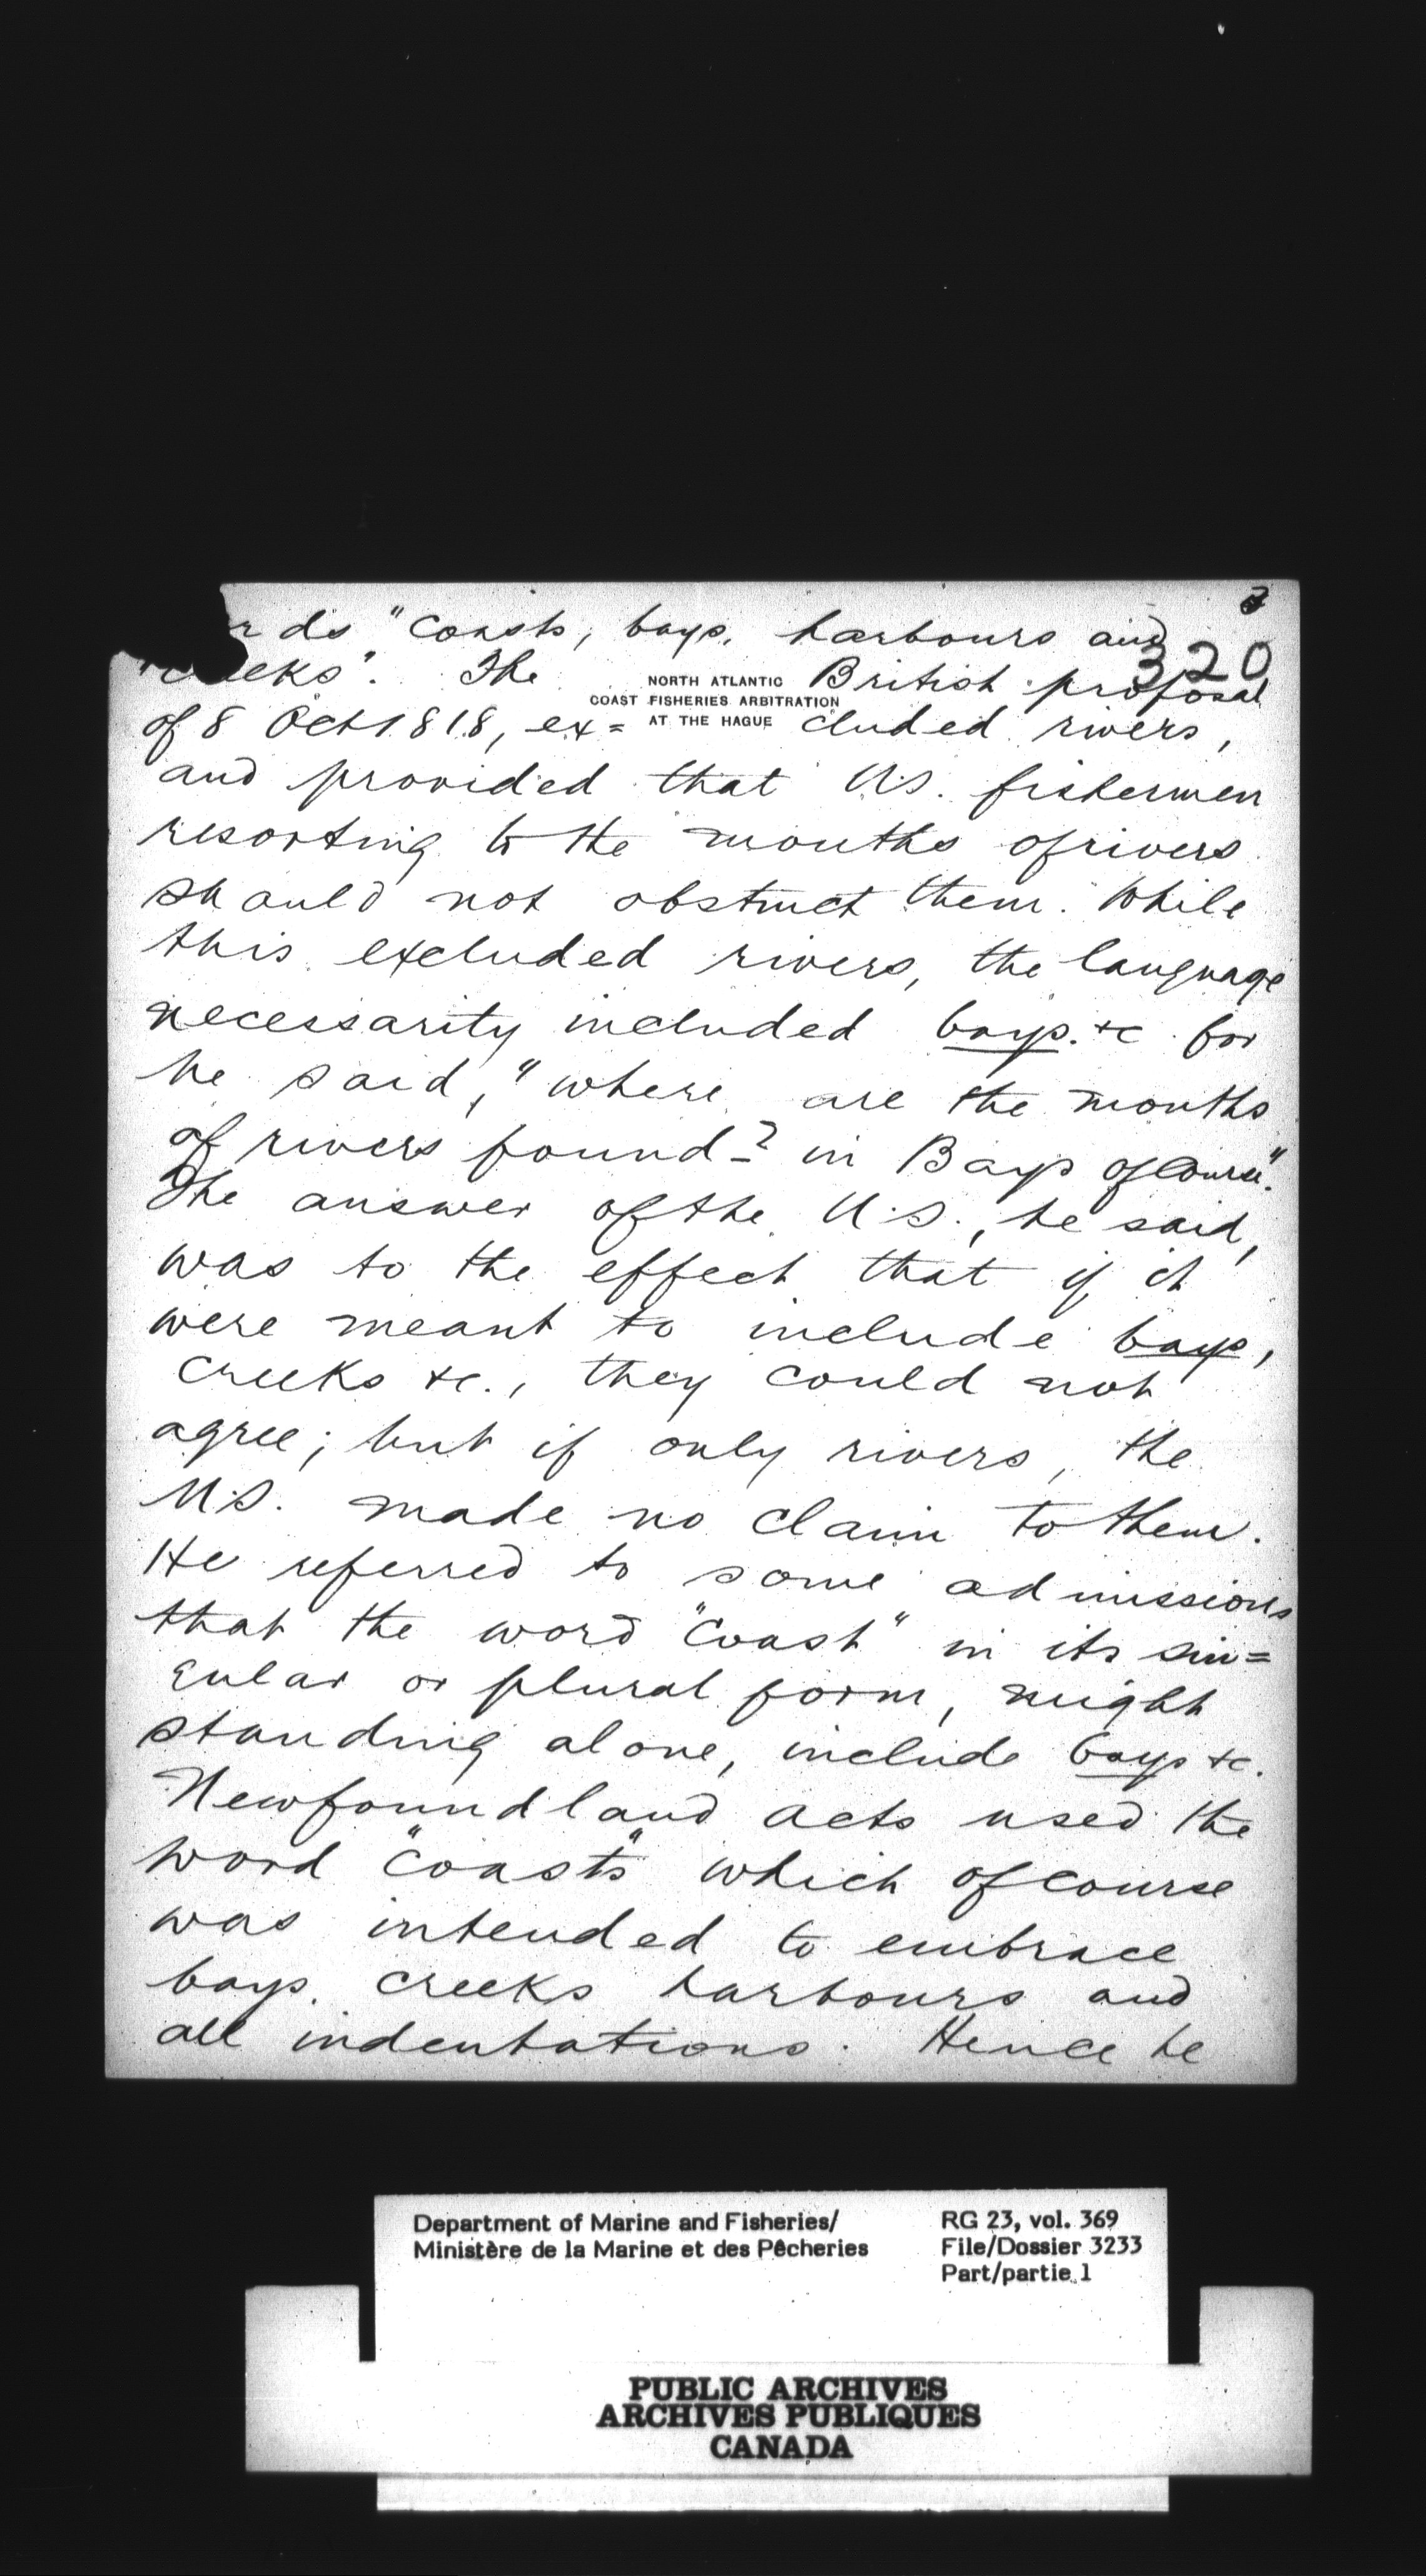 3
320
rds "Coasts, bays, harbours and
"creeks". The British proposal
NORTH ATLANTIC
COAST FISHERIES ARBITRATION
AT THE HAGUE
of 8 Oct 1818, ex= cluded rivers,
and provided that U.S. fishermen
resorting to the mouths of rivers
should not obstruct them. While
this excluded rivers, the language
necessarity included bays. &c for
he said, "where are the mouths
of rivers found? in Bays of Course".
The answer of the U.S., he said,
was to the effect that if it
were meant to include bays,
creeks &c., they could not
agree; but if only rivers, the
U.S. made no claim to them.
He referred to some admissions
that the word "Coast" in its sin=
gular or plural form, might
standing alone, include bays &c.
Newfoundland acts used the
word "Coasts" which of course
was intended to embrace
bays, creeks harbours and
all indentations. Hence he
Department of Marine and Fisheries/
Ministère de la Marine et des Pêcheries
RG 23, vol. 369
File/Dossier 3233
Part/partie 1
PUBLIC ARCHIVES
ARCHIVES PUBLIQUES
CANADA